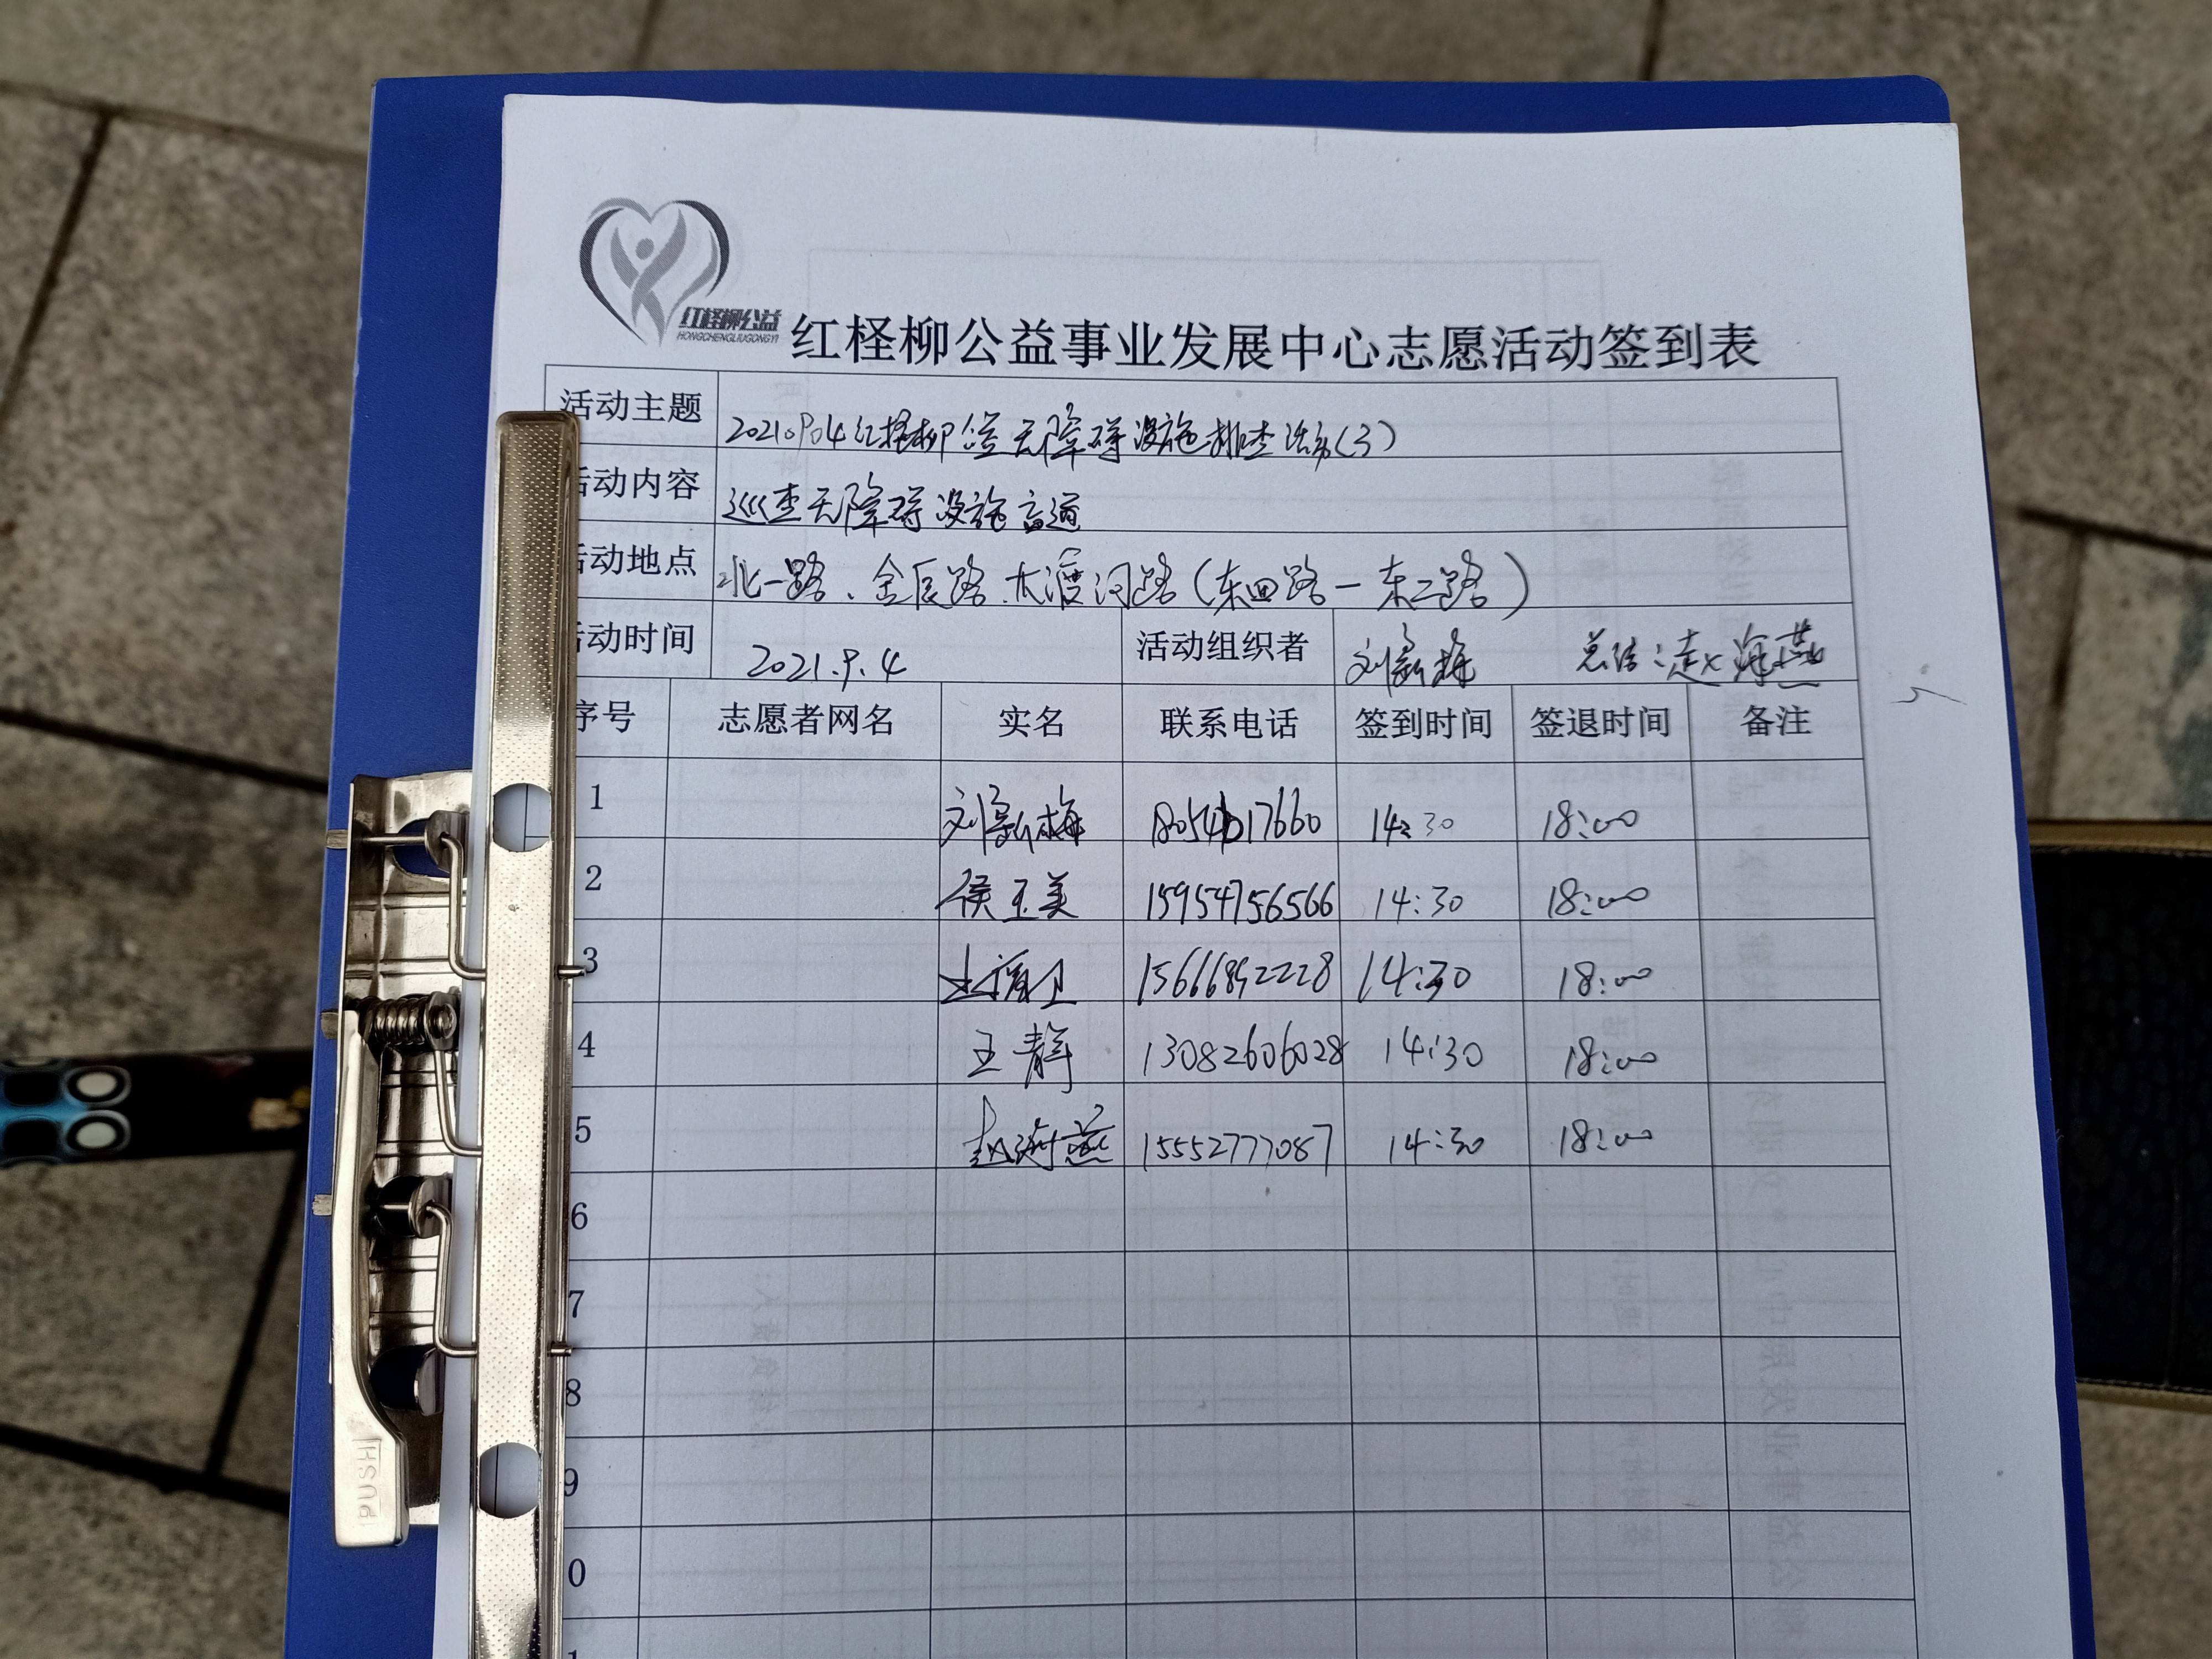 红柽柳公益
HONGCHENGLIUGONGYI
红柽柳公益事业发展中心志愿活动签到表
活动主题 20210904红柽柳公益无障碍设施排查活动(3)
活动内容 巡查无障碍设施盲道
活动地点 北一路、金辰路、大渡河路(东四路一东二路)
活动时间 2021.9.4 活动组织者 刘新梅 总结:赵海燕
序号 志愿者网名 实名 联系电话 签到时间 签退时间 备注
1 刘新梅 14:30 18:00
2 侯玉美 15954756566 14:30 18:00
3 15666892228 14:30 18:00
4 王静 13082606028 14:30 18:00
5 赵海燕 15552777087 14:30 18:00
6
7
8
9
0
PUSH